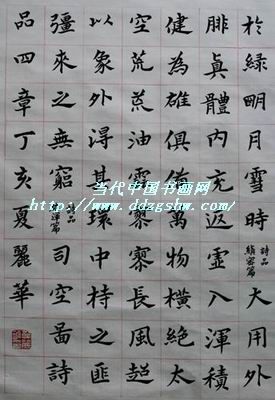 於綠明月雪時
詩品
縝密篇
大用外
腓真體内充返虛入渾積
健為雄俱備萬物橫絕太
空荒荒油雲寥寥長風超
以象外淂其環中持之匪
彊來之無窮
詩品
司空圖詩
品四章丁亥夏麗華
当代中国书画网
http://www.ddzgshw.com/